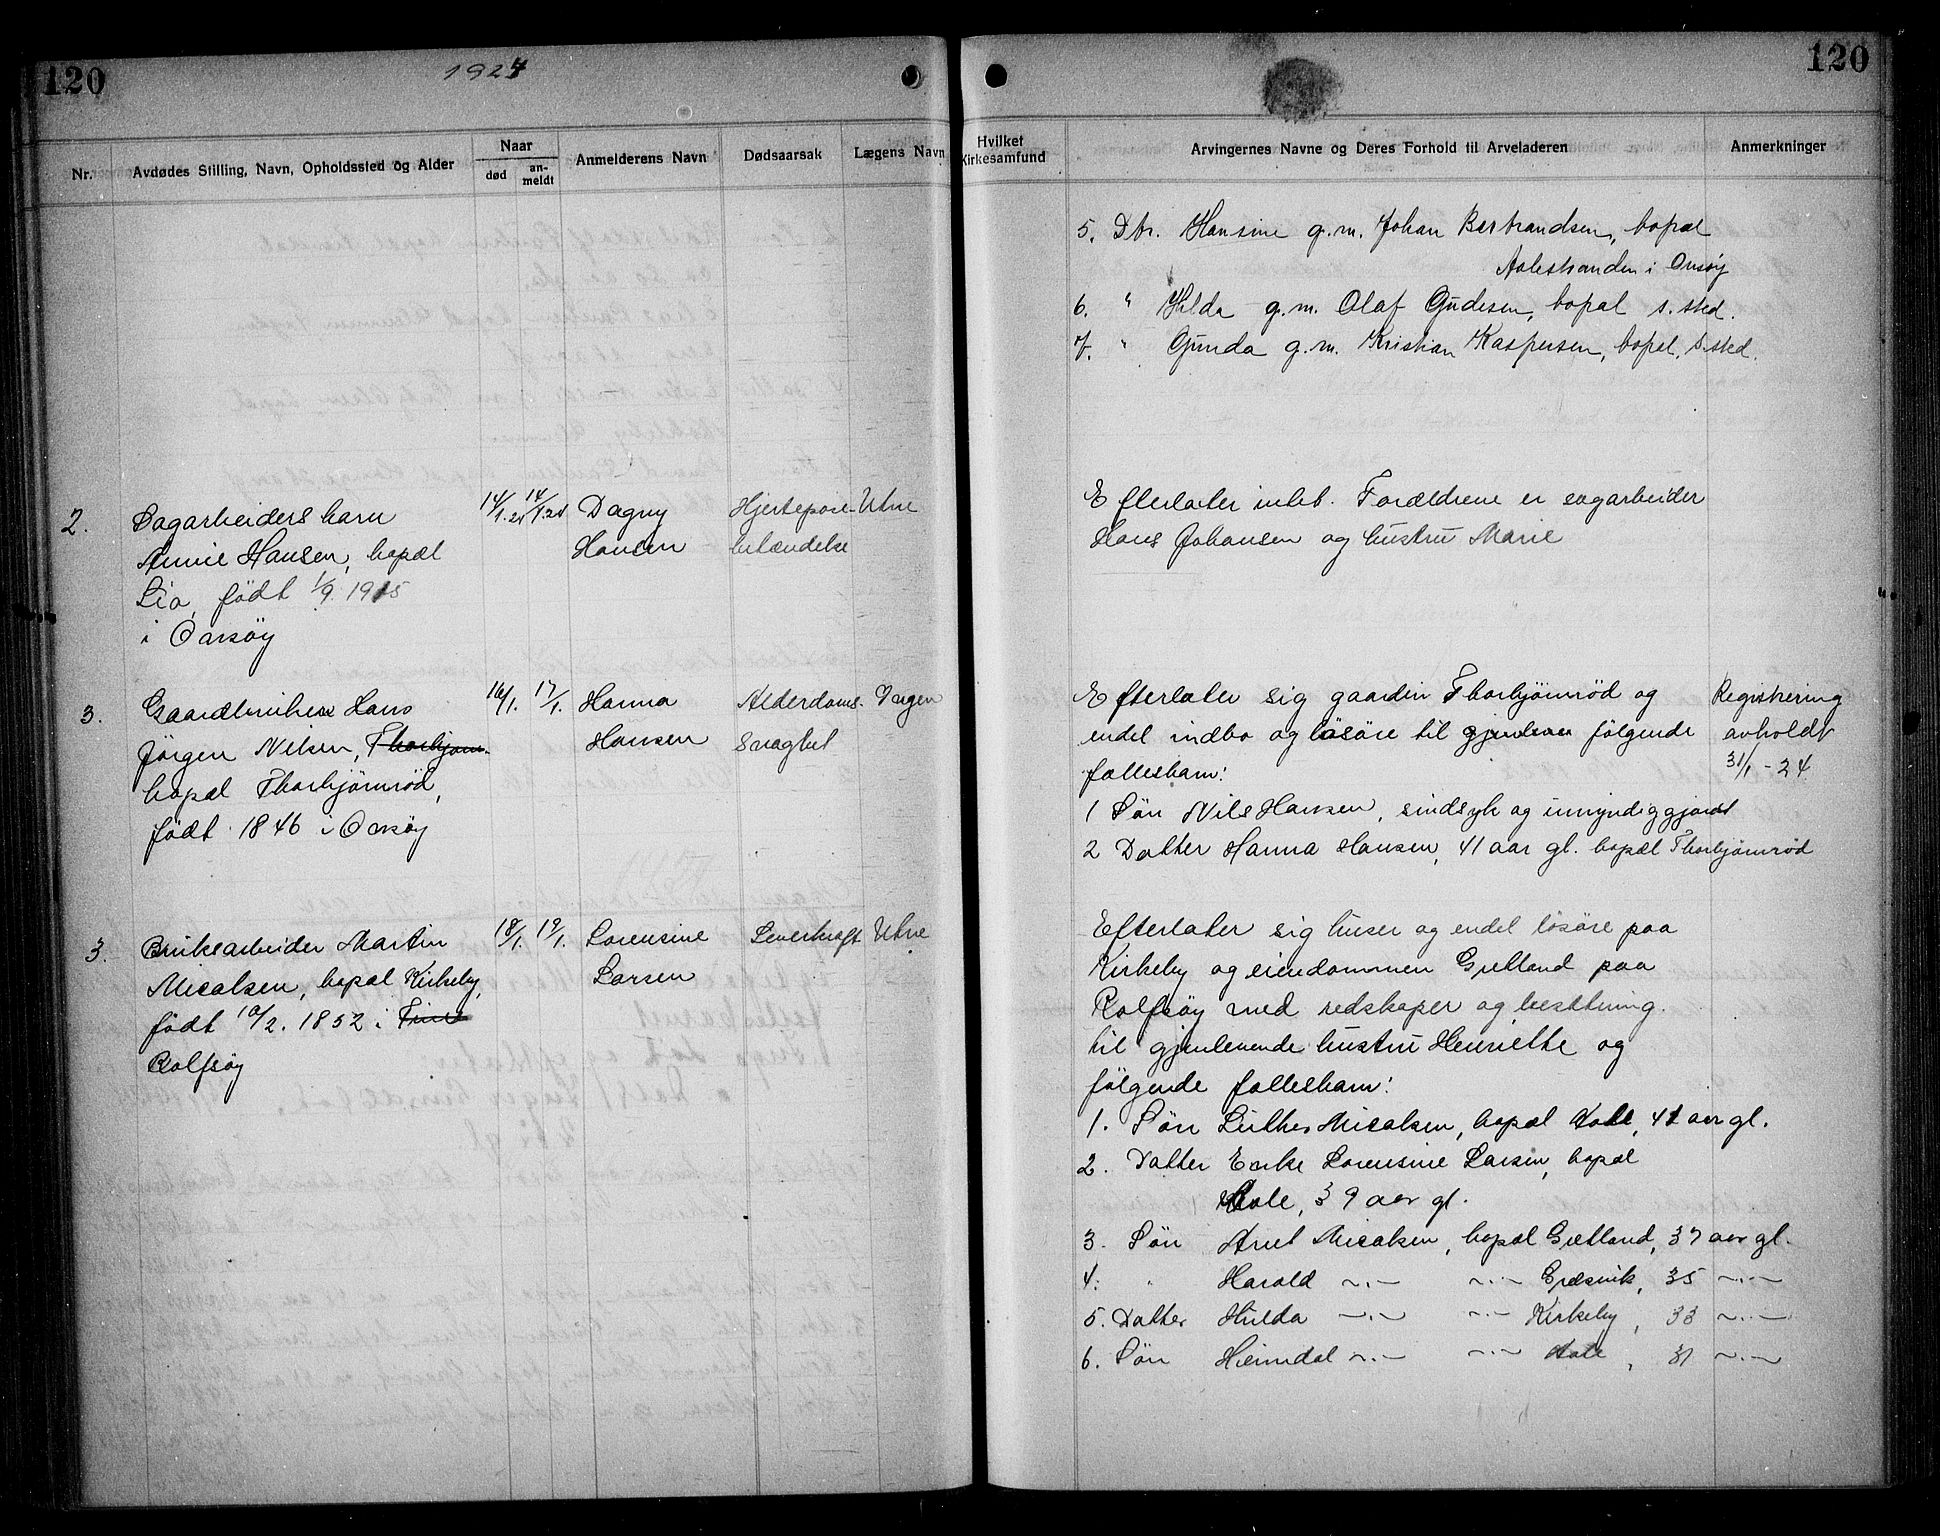 120
1924
Nr.
Avdødes Stilling, Navn, Opholdssted og Alder
Naar
død
an-
meldt
Anmelderens Navn
Dødsaarsak
Lægens Navn
2.
Sagarbeiders barn
Annie Hansen, bopæl
Lia, født 1/9. 1915
i Onsøy
14/1.24
14/1.24
Dagny
Hansen
Hjertepose-
betændelse
Utne
3.
Gaardbruker Hans
Jörgen Nilsen, Thorbjørn-
bopæl Thorbjörnröd,
født 1846 i Onsöy
16/1.
17/1.
Hanna
Hansen
Alderdoms-
svaghet
3.
Bruksarbeider Martin
Micalsen, bopæl Kirkeby,
født 10/2. 1852 i
Rolfsöy
18/1.
19/1.
Lorensine
Larsen
Leverkræft
Utne
120
Hvilket
Kirkesamfund
Arvingernes Navne og Deres Forhold til Arveladeren
Anmerkninger
5. Dtr. Hansine g.m. Johan Bertrandsen, bopæl
Aalestranden i Onsöy
6. " Hilda g.m. Olaf Gudesen, bopæl s. sted.
7. " Gunda g.m. Kristian Kaspersen, bopæl, S. sted.
Efterlater intet. Forældrene er sagarbeider
Hans Johansen og hustru Marie
Efterlater sig gaarden Thorbjörnröd og
endel indbo og lösöre til gjenleve følgende
fællesbarn:
1 Sön Nils Hansen, sindsyk og umyndiggjordt
2 Datter Hanna Hansen, 41 aar gl. bopæl Thorbjörnröd
Registrering
avholdt
31/1 - 24
Efterlater sig huser og endel lösöre paa
Kirkeby og eiendommen Gretland paa
Rolfsöy med redskaper og besetning
til gjenlevende hustru Henriette og
følgende fællesbarn:
1. Sön Luther Micalsen, bopæl Aale, 41 aar gl.
2. Datter Enke Lorensine Larsen, bopæl
Aale, 39 aar gl.
3. Sön Arnt Micalsen, bopæl Gretland, 37 aar gl.
4. " Harald ~.~ ~.~ Gresvik, 35 ~.~
5. Datter Hulda ~.~ ~.~ Kirkeby, 33 ~.~
6. Sön Heimdal ~.~ ~.~ Aale, 31 ~.~